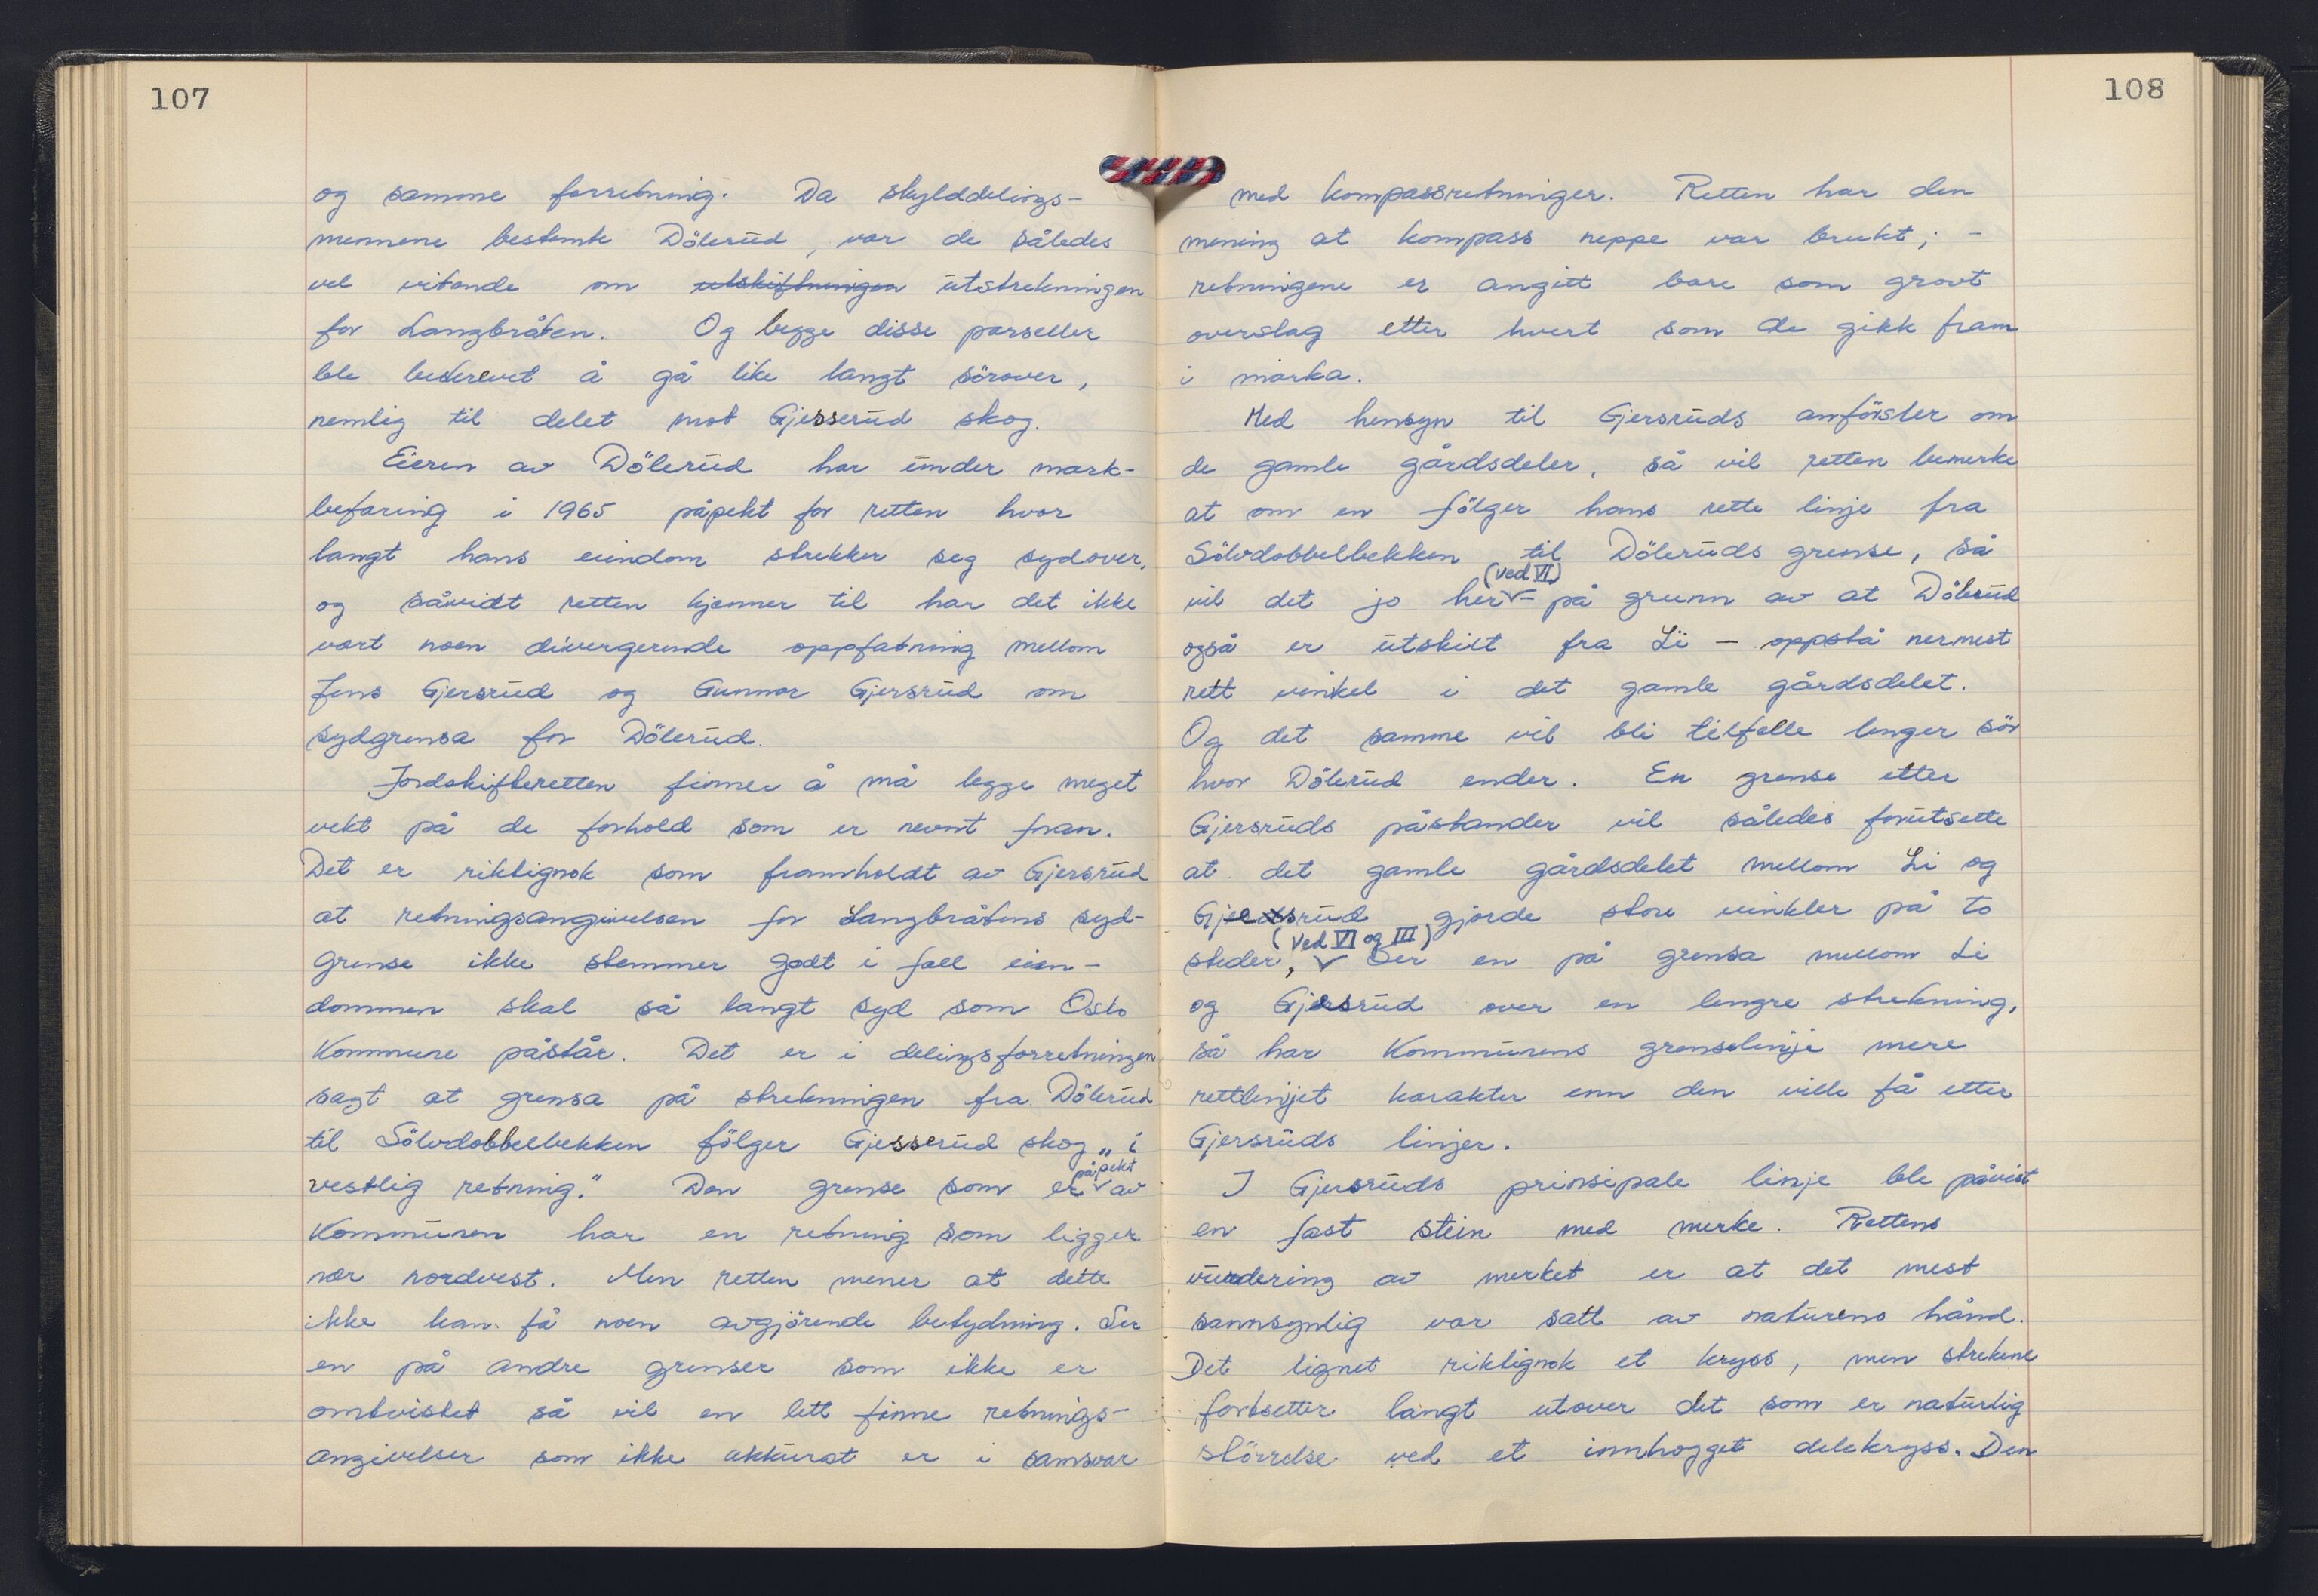 107
og samme forretning. Da skylddelings-
mennene bestemte Dölerud, var de således
vel vitende om utskiftningen utstrekningen
for Langbråten. Og begge disse parseller
ble beskrevet å gå like langt sörover,
nemlig til delet mot Gjesserud skog.
Eieren av Dölerud har under mark-
befaring i 1965 påpekt for retten hvor
langt hans eiendom strekker seg sydover,
og såvidt retten kjenner til har det ikke
vært noen divergerende oppfatning mellom
Jens Gjersrud og Gunnar Gjersrud om
sydgrensa for Dölerud.
Jordskifteretten finner å må legge meget
vekt på de forhold som er nevnt foran.
Det er riktignok som framholdt av Gjersrud
at retningsangivelsen for Langbråtens syd-
grense ikke stemmer godt i fall eien-
dommen skal så langt syd som Oslo
Kommune påstår. Det er i delingsforretningen
sagt at grensa på strekningen fra Dölerud
til Sölvdobbelbekken fölger Gjesserud skog „i
vestlig retning." Den grense som er påpekt av
Kommunen har en retning som ligger
nær nordvest. Men retten mener at dette
ikke kan få noen avgjörende betydning. Ser
en på andre grenser som ikke er
omtvistet så vil en lett finne retnings-
angivelser som ikke akkurat er i samsvar
108
med kompassretninger. Retten har den
mening at kompass neppe var brukt; -
retningene er angitt bare som grovt
overslag etter hvert som de gikk fram
i marka.
Med hensyn til Gjersruds anförsler om
de gamle gårdsdeler, så vil retten bemerke
at om en fölger hans rette linje fra
Sölvdobbelbekken til Döleruds grense, så
vil det jo her (ved VI) - på grunn av at Dölerud
også er utskilt fra Li - oppstå nermest
rett vinkel i det gamle gårdsdelet.
Og det samme vil bli tilfelle lenger sör
hvor Dölerud ender. En grense etter
Gjersruds påstander vil således forutsette
at det gamle gårdsdelet mellom Li og
Gjersrud gjorde store vinkler på to
steder, (ved VI og III) Ser en på grensa mellom Li
og Gjersrud over en lengre strekning,
så har Kommunens grenselinje mere
rettlinjet karakter enn den ville få etter
Gjersruds linjer.
I Gjersruds prinsipale linje ble påvist
en fast stein med merke. Rettens
vurdering av merket er at det mest
sannsynlig var satt av naturens hånd.
Det lignet riktignok et kryss, men strekene
fortsetter langt utover det som er naturlig
störrelse ved et innhogget delekryss. Den